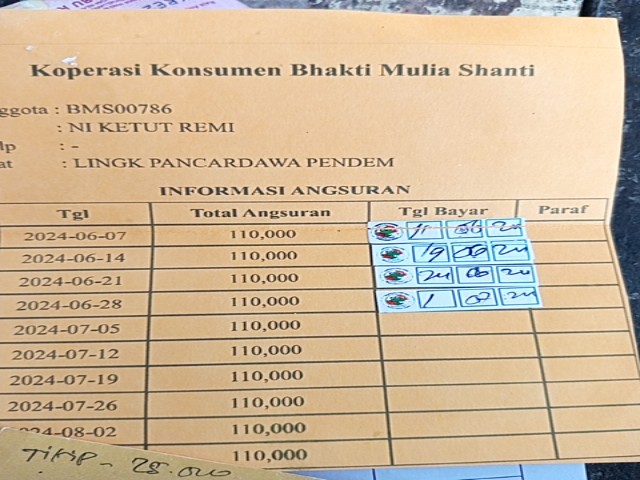 Koperasi Konsumen Bhakti Mulia Shanti
nggota : BMS00786
: NI KETUT REMI
Hp : -
at : LINGK PANCARDAWA PENDEM
INFORMASI ANGSURAN
Tgl Total Angsuran Tgl Bayar Paraf
2024-06-07 110,000 11 06 24
2024-06-14 110,000 19 06 24
2024-06-21 110,000 24 06 24
2024-06-28 110,000 1 24
2024-07-05 110,000
2024-07-12 110,000
2024-07-19 110,000
2024-07-26 110,000
2024-08-02 110,000
110,000
25.000